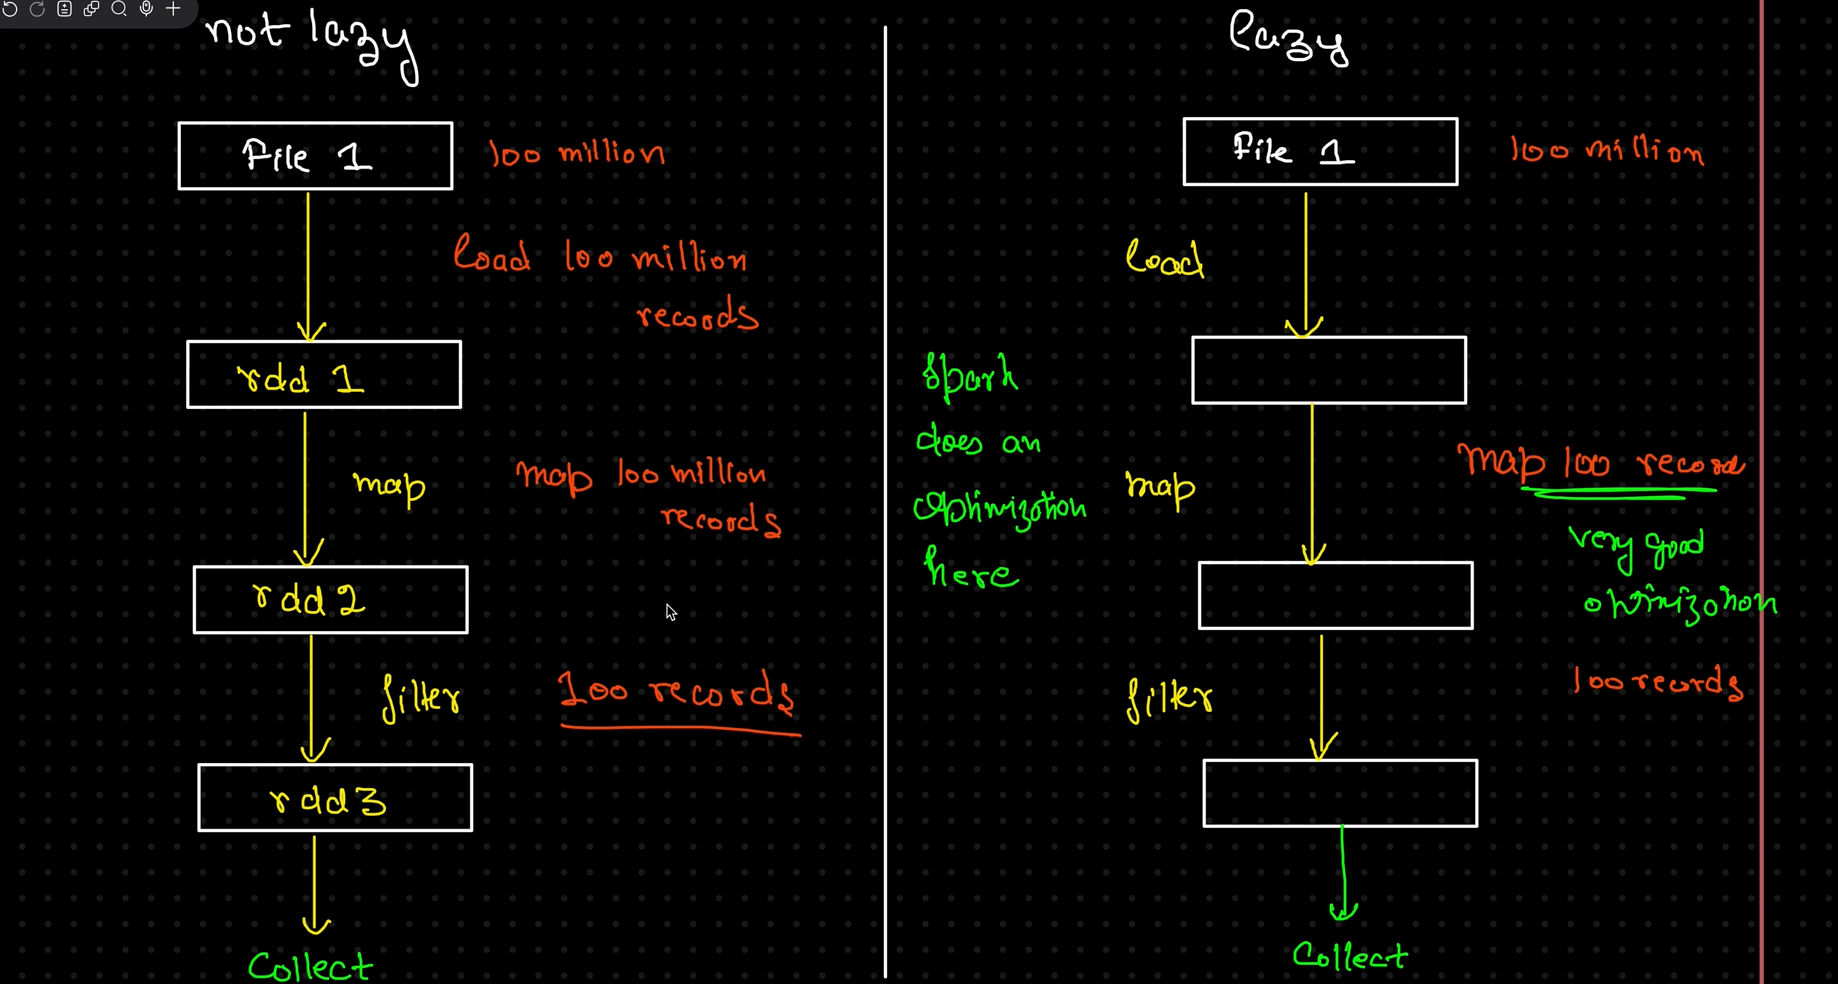 not lazy
File 1
100 million
load 100 million
records
rdd 1
map
map 100 million
records
rdd 2
filter
100 records
rdd 3
Collect
lazy
File 1
100 million
load
Spark
does an
optimization
here
map
map 100 record
very good
optimization
filter
100 records
Collect